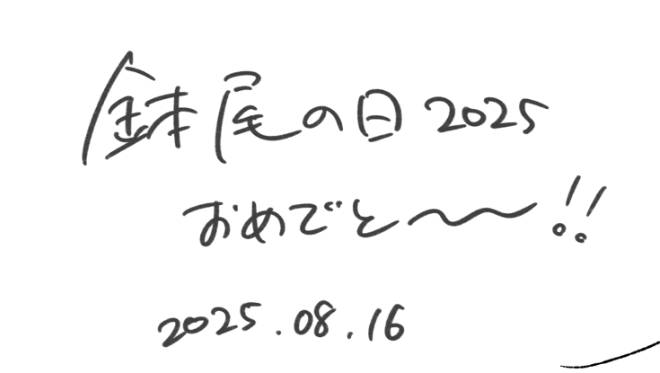 鉢尾の日2025
おめでと〜〜!!
2025.08.16